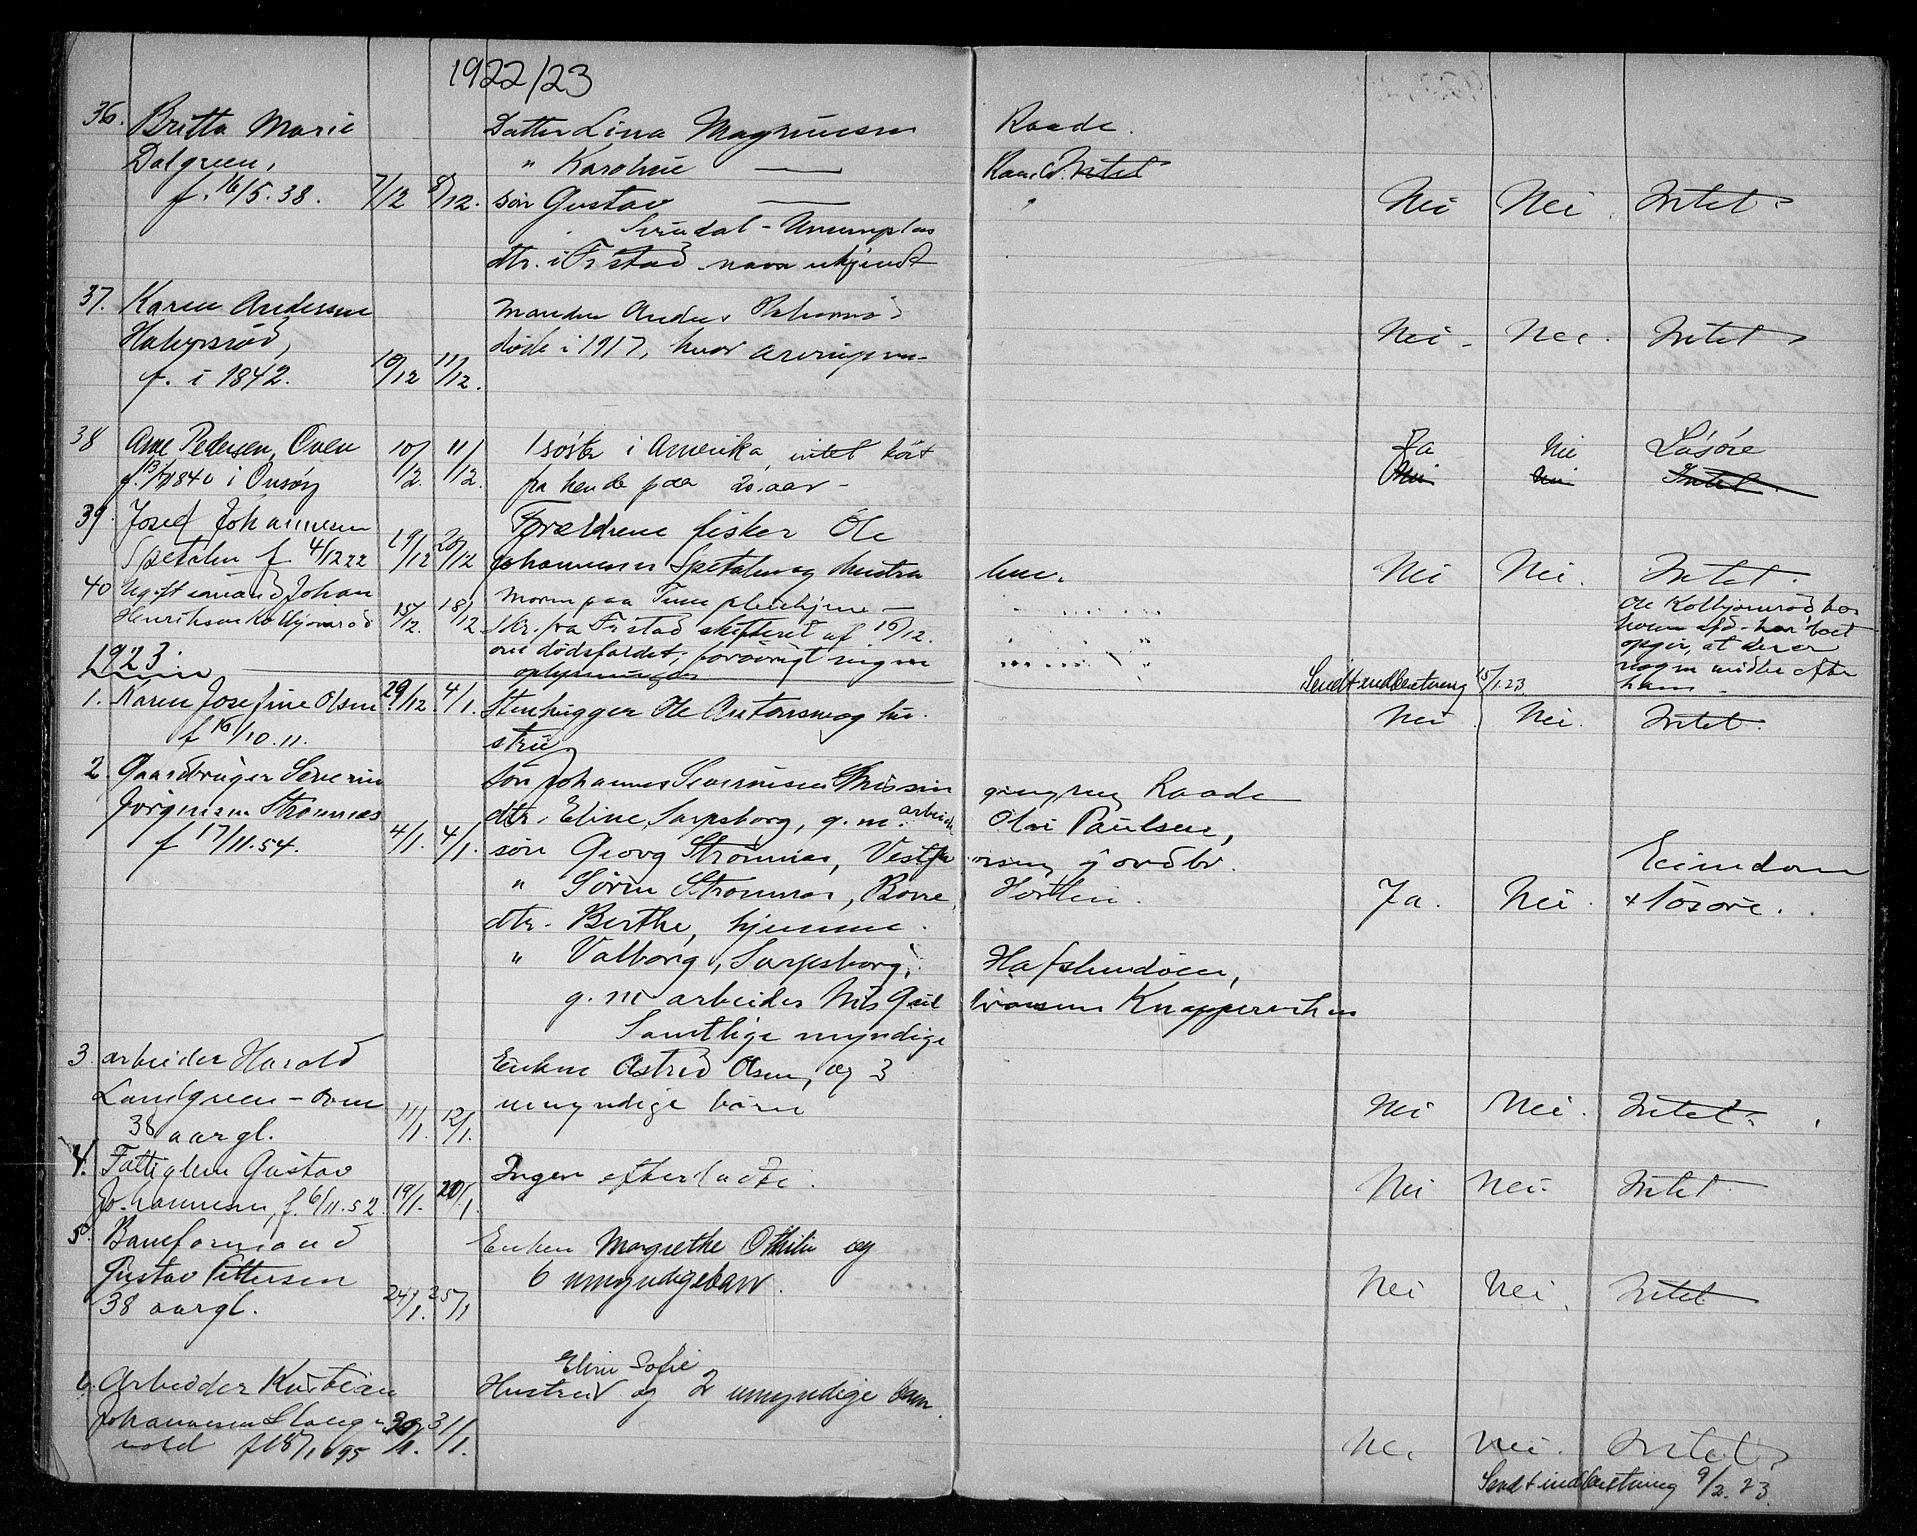 1922/23
36. Britta Marie Datter Lina Magnussen Raade.
Dalgreen, " Karoline —
f. 16/5.38. 7/12 8/12. søn Gustav — " Nei Nei. Intet.
dtr. i Fr.stad navn ukjendt
37. Karen Andersen manden Anders
f. i 1842. 10/12 11/12. døde i 1917, hvor Nei. Nei. Intet
38 Pedersen, Oven 10/12. 11/12. 1 søster i Amerika, intet hørt Ja Nei Løsøre
1840 i Onsøy fra hende paa 20 aar - Nei Nei Intet
39. Josef Johannesen 19/12 20/12 Forældrene fisker Ole
Spetalen f. 4/12 22 Johannesen Spetalen og hustru Nei Nei. Intet.
40 Ugift mand Johan 15/12. 18/12 Moren paa Tune pleiehjem —
Henriksen Kolbjørnrød skr. fra Fr.stad skifteret af 16/12. Ole Kolbjørnrød hos
om dødsfaldet, forøvrigt ingen hvem afd. har boet
oplysninger opgir, at der er
1923. ingen midler efter
Sendt indberetning 5/1.23 ham.
1. Karen Josefine Olsen 29/12. 4/1. Stenhugger Ole Antonsen og hu-
f 16/10.11. stru Nei Nei. Intet.
2. Gaardbruger Severin søn Johannes Severinsen Raade
Jørgensen Strømnes dtr. Eline, Sarpsborg, g.m. arbeid. Olai Paulsen,
f 17/11.54. 4/1. 4/1. søn Georg Strømnes, gardbr. Eiendom
" Søren Strømnes, Borre, Horten. Ja. Nei. + løsøre.
dtr. Berthe, hjemme.
" Valborg, Sarpsborg, Hafslundsøen,
g. m arbeider Nils Gul bransen
Samtlige myndige
3. arbeider Harald Enken Astrid Olsen, og 3
Lundgreen - umyndige børn Nei Nei. Intet.
38 aar gl. 11/1. 12/1.
4. Fattiglem Gustav Ingen efterladte. Nei Nei. Intet.
Johannesen, f. 6/11.52. 19/1. 20/1.
5. Baneformand Enken Margrethe Othilie og
Gustav Pettersen 6 umyndige barn. Nei Nei. Intet
38 aar gl. 24/1. 25/1
Eline Sofie
6. Arbeider Kristian Hustru og 2 umyndige barn.
Johannesen 30/1. 31/1. Nei Nei. Intet.
Sendt indberetning 9/2.23.